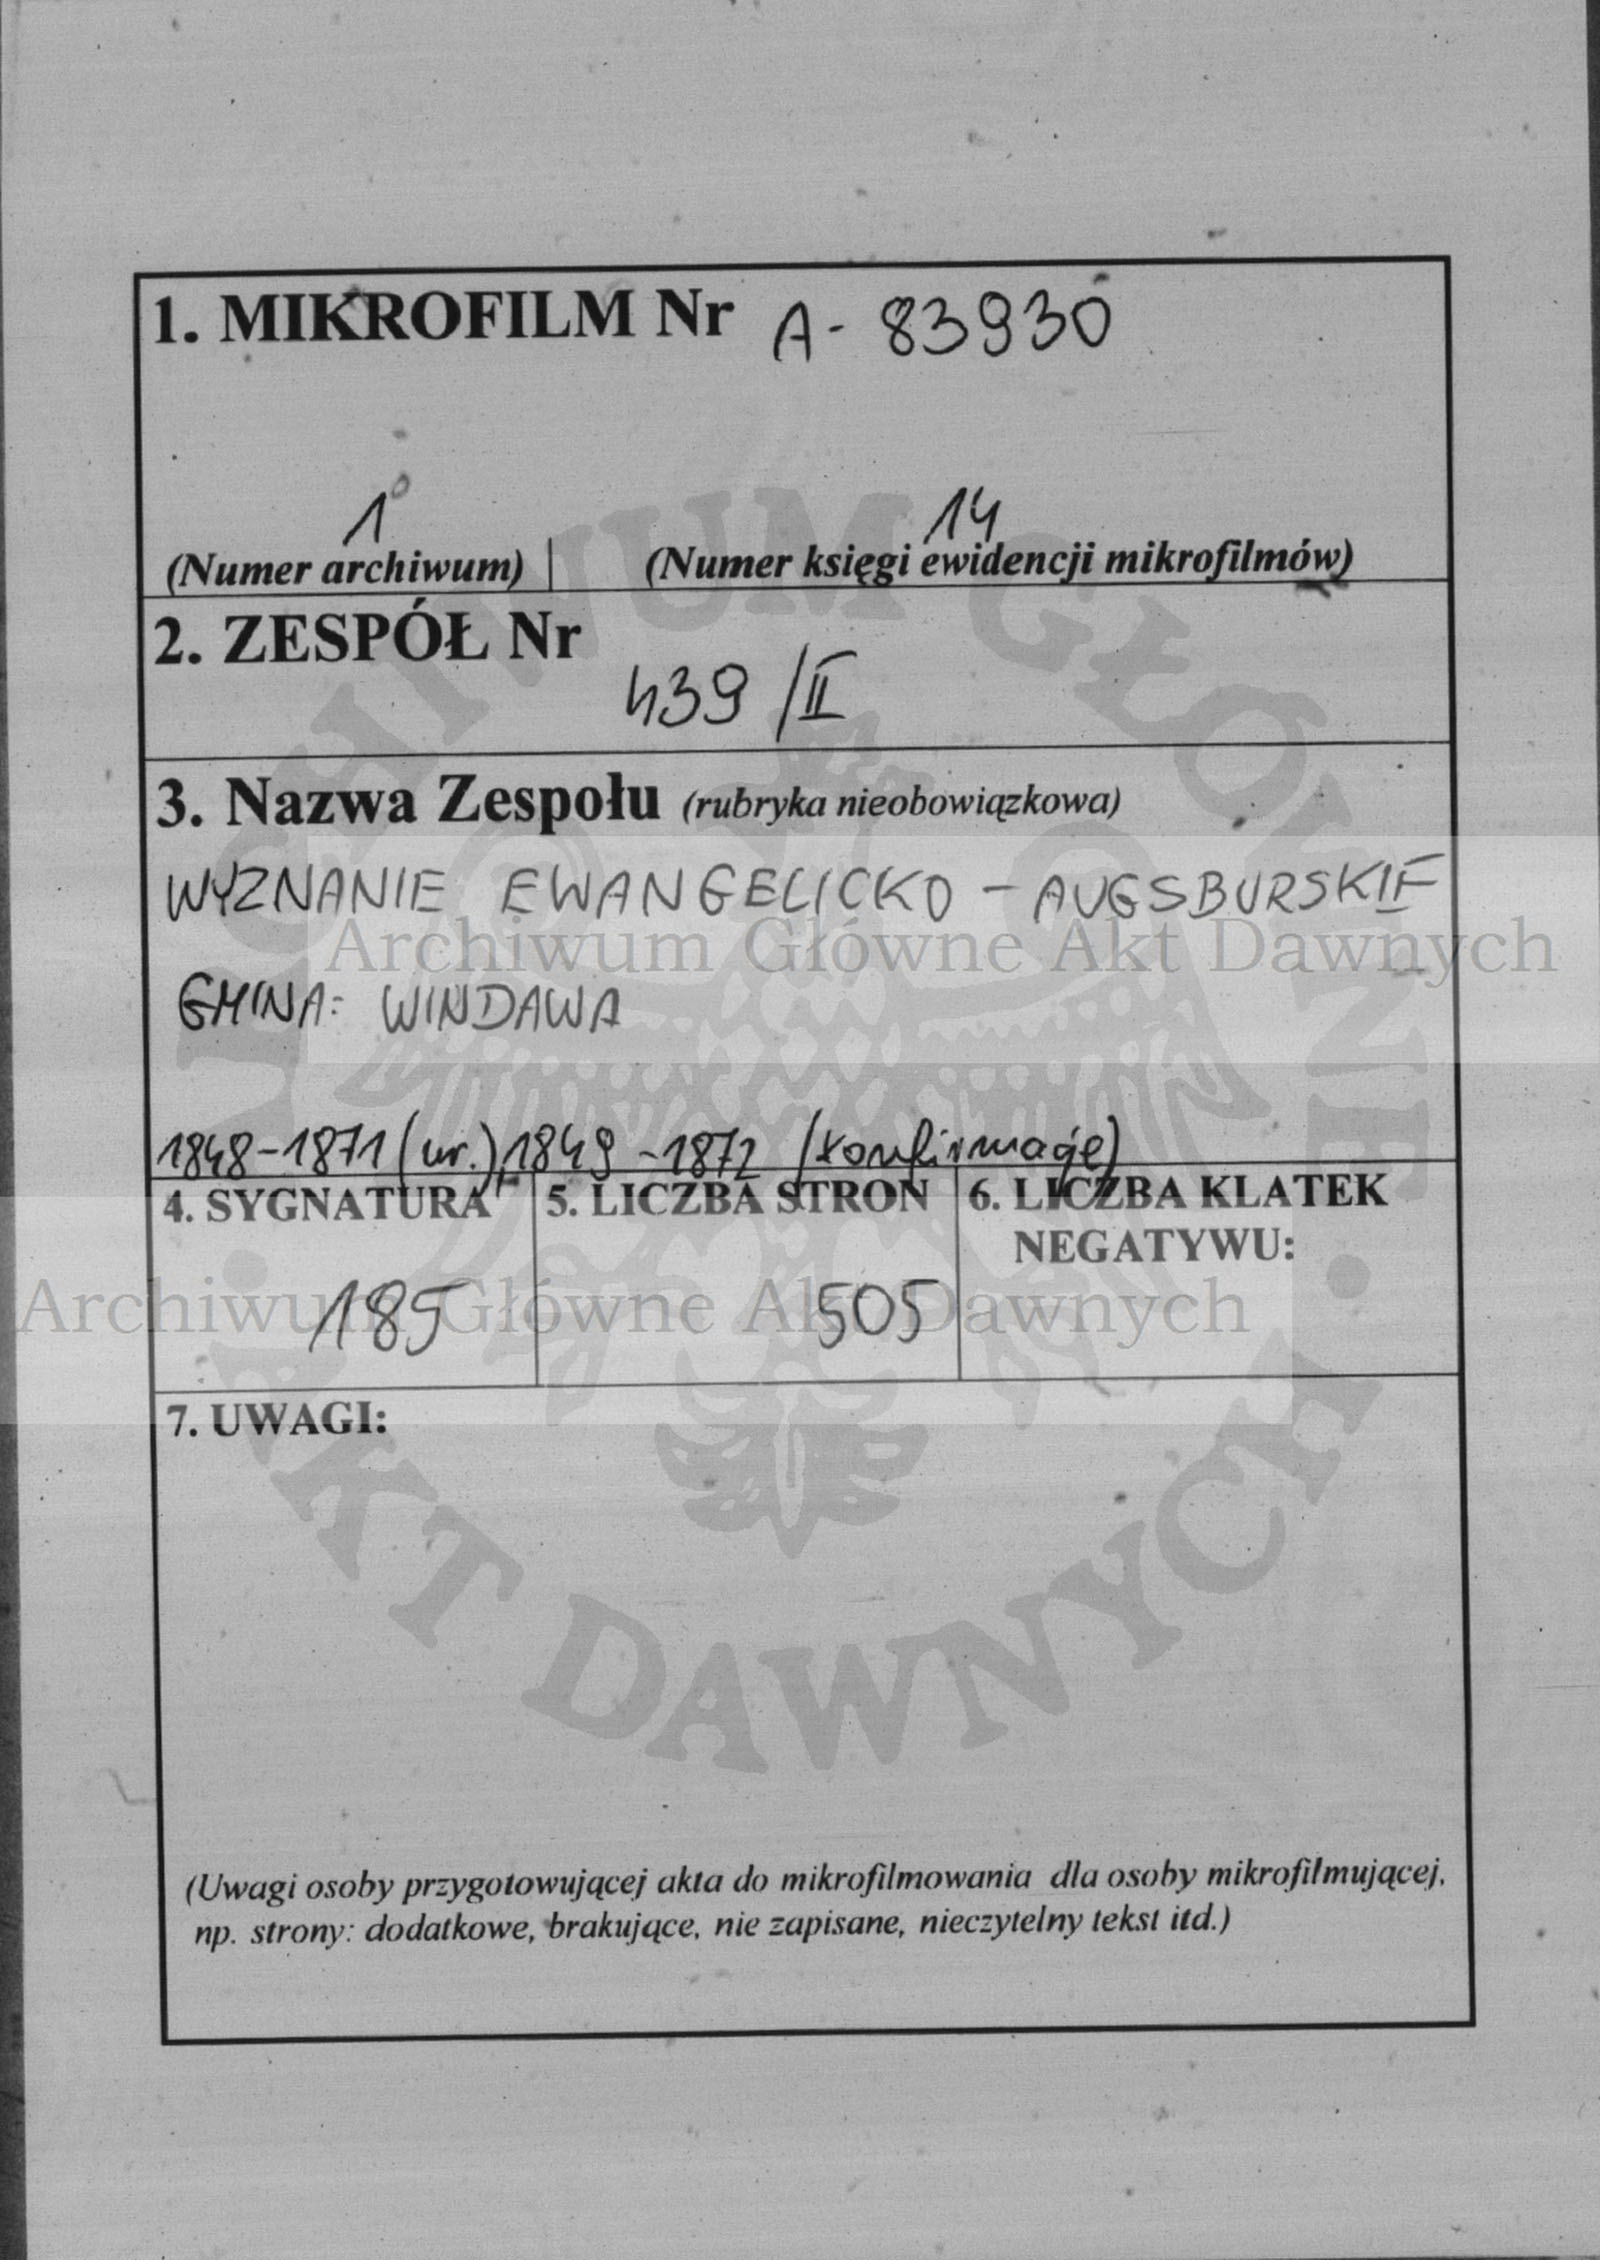 1. MIKROFILM Nr A- 83930
1 14
(Numer archiwum) (Numer księgi ewidencji mikrofilmów)
2. ZESPÓŁ Nr
439 /II
3. Nazwa Zespołu (rubryka nieobowiązkowa)
WYZNANIE EWANGELICKO - AUGSBURSKIE
Archiwum Główne Akt Dawnych
GMINA: WINDAWA
1848-1871 (ur.), 1849-1872 (konfirmacje)
4. SYGNATURA 5. LICZBA STRON 6. LICZBA KLATEK
NEGATYWU:
185 505
Archiwum Główne Akt Dawnych
7. UWAGI:
ARCHIWUM GŁÓWNE · AKT DAWNYCH ·
(Uwagi osoby przygotowującej akta do mikrofilmowania dla osoby mikrofilmującej,
np. strony: dodatkowe, brakujące, nie zapisane, nieczytelny tekst itd.)